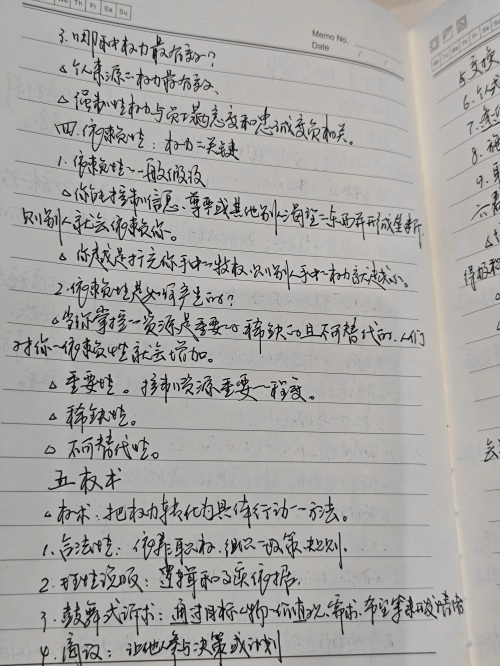 We Th Fr Sa Su
Memo No.
Date / /
3. 哪种权力最有效?
△ 个人来源的权力最有效、
△ 强制性权力与员工的态度和忠诚度负相关。
四. 依赖性:权力的关键
1. 依赖性的一般假设
△ 你能控制信息、尊严或其他别人希望的东西并形成垄断,
则别人就会依赖你。
△ 你越是扩充你手中的权力,则别人手中的权力就越小。
2. 依赖性是如何产生的?
△ 当你掌控的资源是重要的稀缺的且不可替代的,人们
对你的依赖性就会增加。
△ 重要性。控制资源重要的程度。
△ 稀缺性。
△ 不可替代性。
五 权术
△ 权术:把权力转化为具体行动的方法。
1. 合法性:依靠职权,组织的政策规则.
2. 理性说服:逻辑和事实依据.
3. 鼓舞式诉求:通过目标人物的价值观、需求、希望等来开发情绪
4. 商议:让他人参与决策或计划
5. 交换
6. 个人
7.
8.
9.